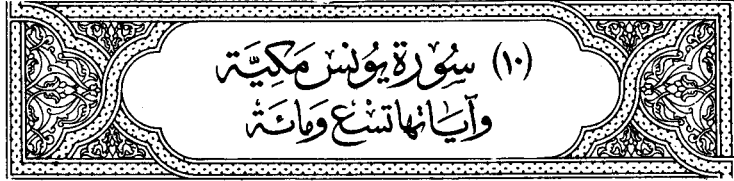 (١٠) سُوْرَةِ يُونسَ مَكِيَّة
وَآيَاتهَا تسْعٌ وَمائَة